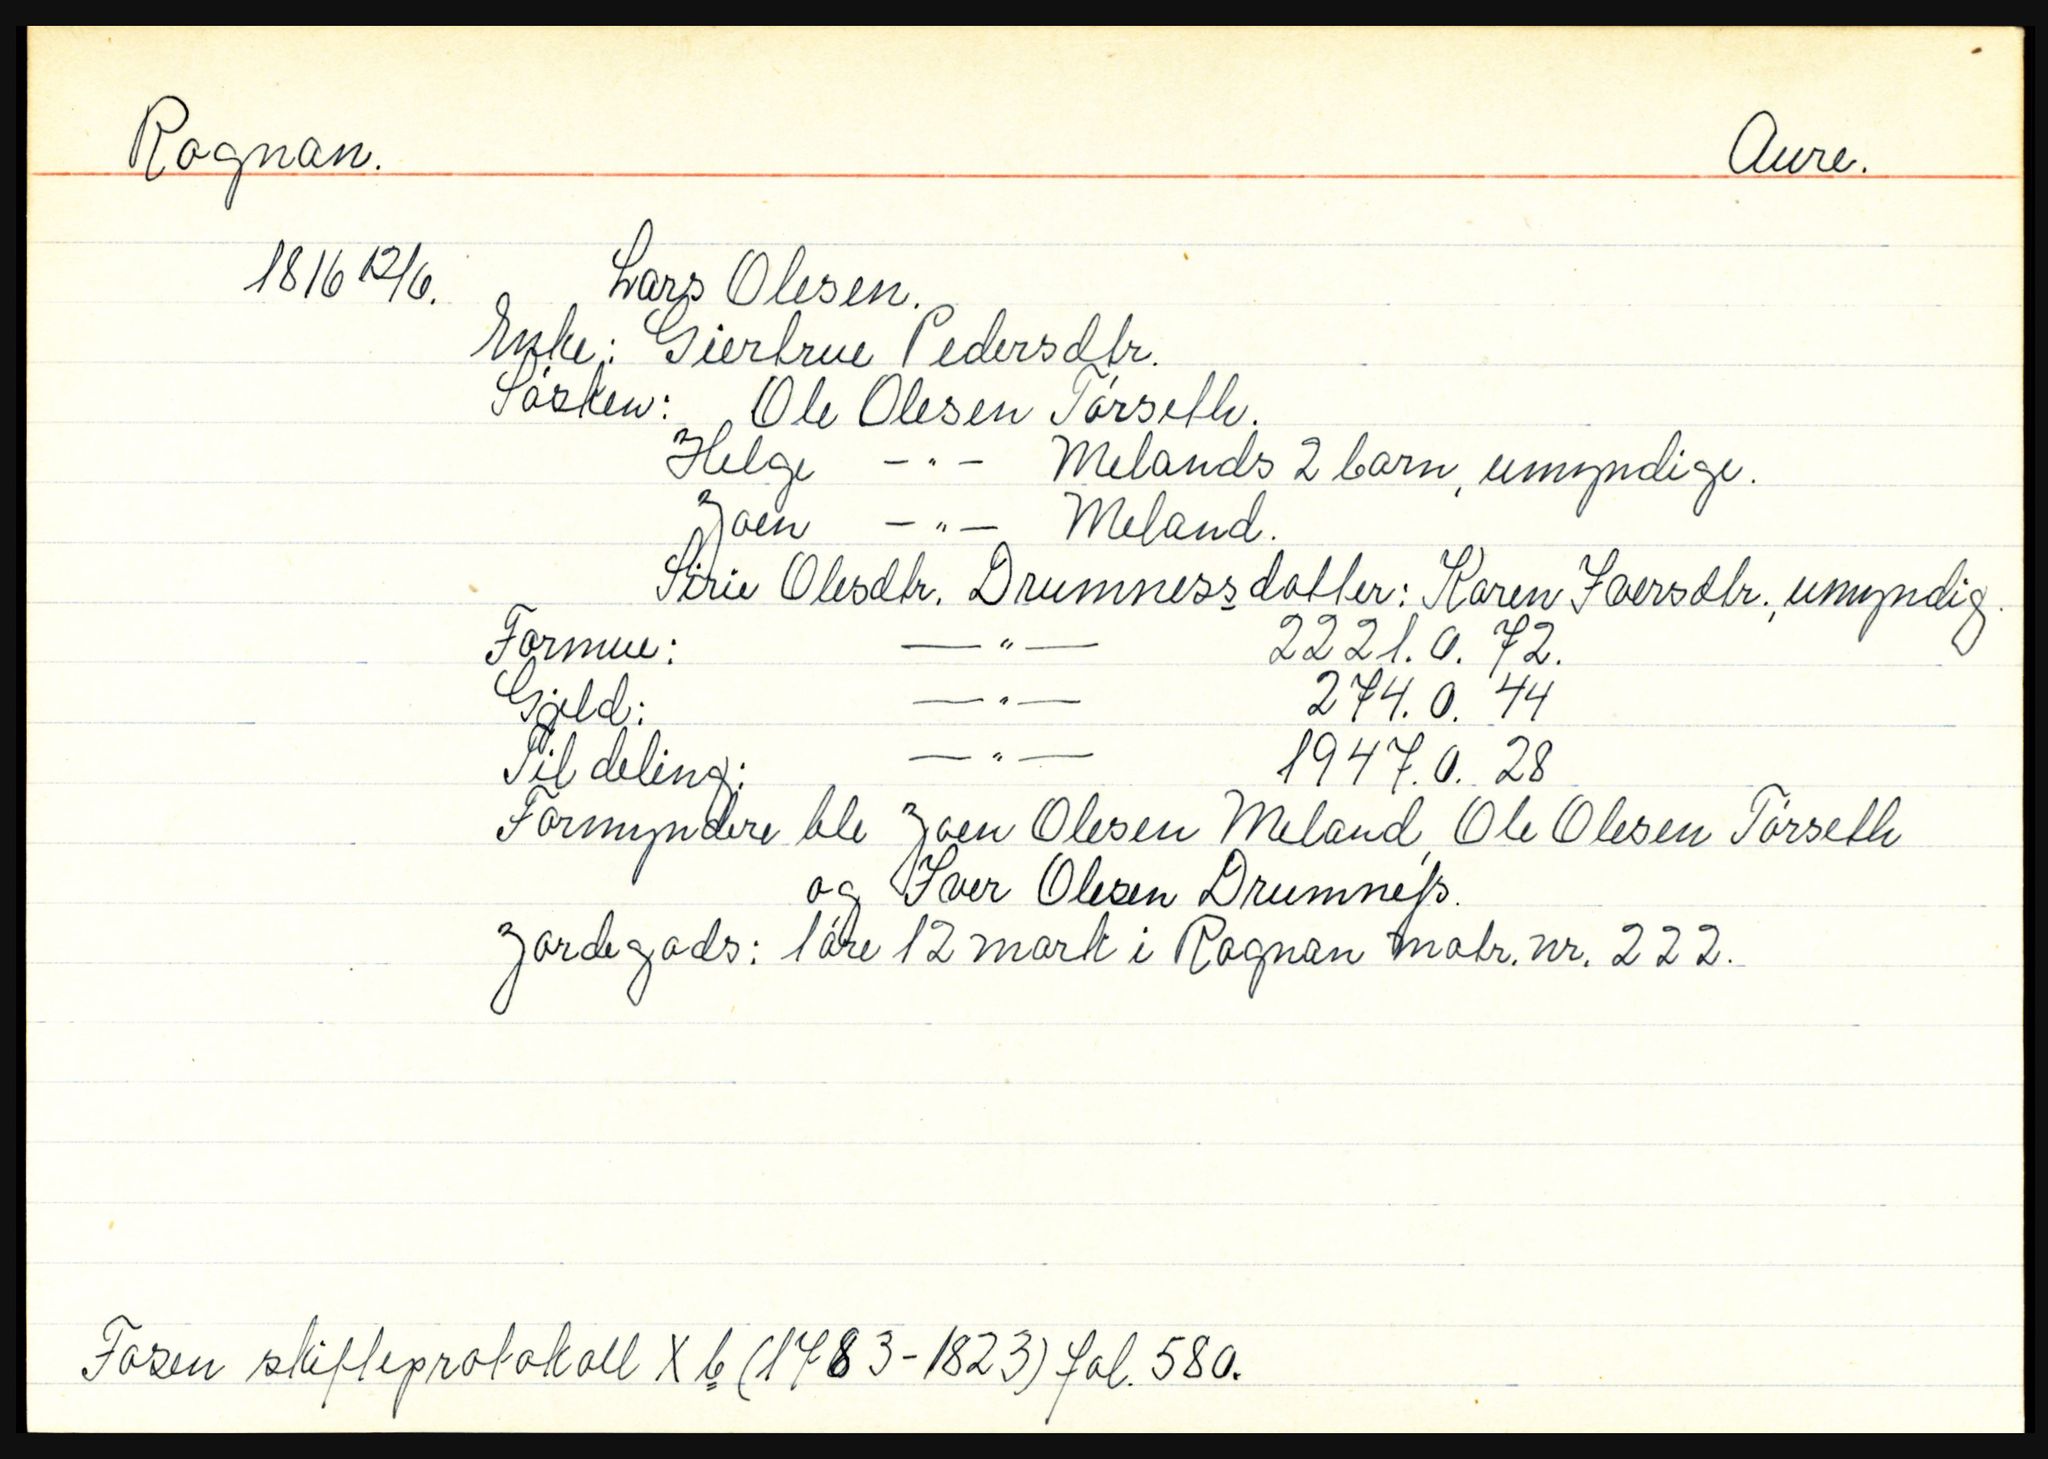 Rognan. Aure.
1816 12/6. Lars Olesen.
Enke: Giertrue Pedersdtr.
Søsken: Ole Olesen Tørseth.
Helge -"- Melands 2 barn, umyndige.
Joen -"- Meland.
Sirie Olesdtr. Drumness datter: Karen Iversdtr., umyndig.
Formue: -"- 2221. 0. 72.
Gjeld: -"- 274. 0. 44
Til deling: -"- 1947. 0. 28
Formyndere ble Joen Olesen Meland, Ole Olesen Tørseth
og Iver Olesen Drumness.
Jordegods: 1 øre 12 mark i Rognan matr. nr. 222.
Fosen skifteprotokoll X b (1783-1823) fol. 580.